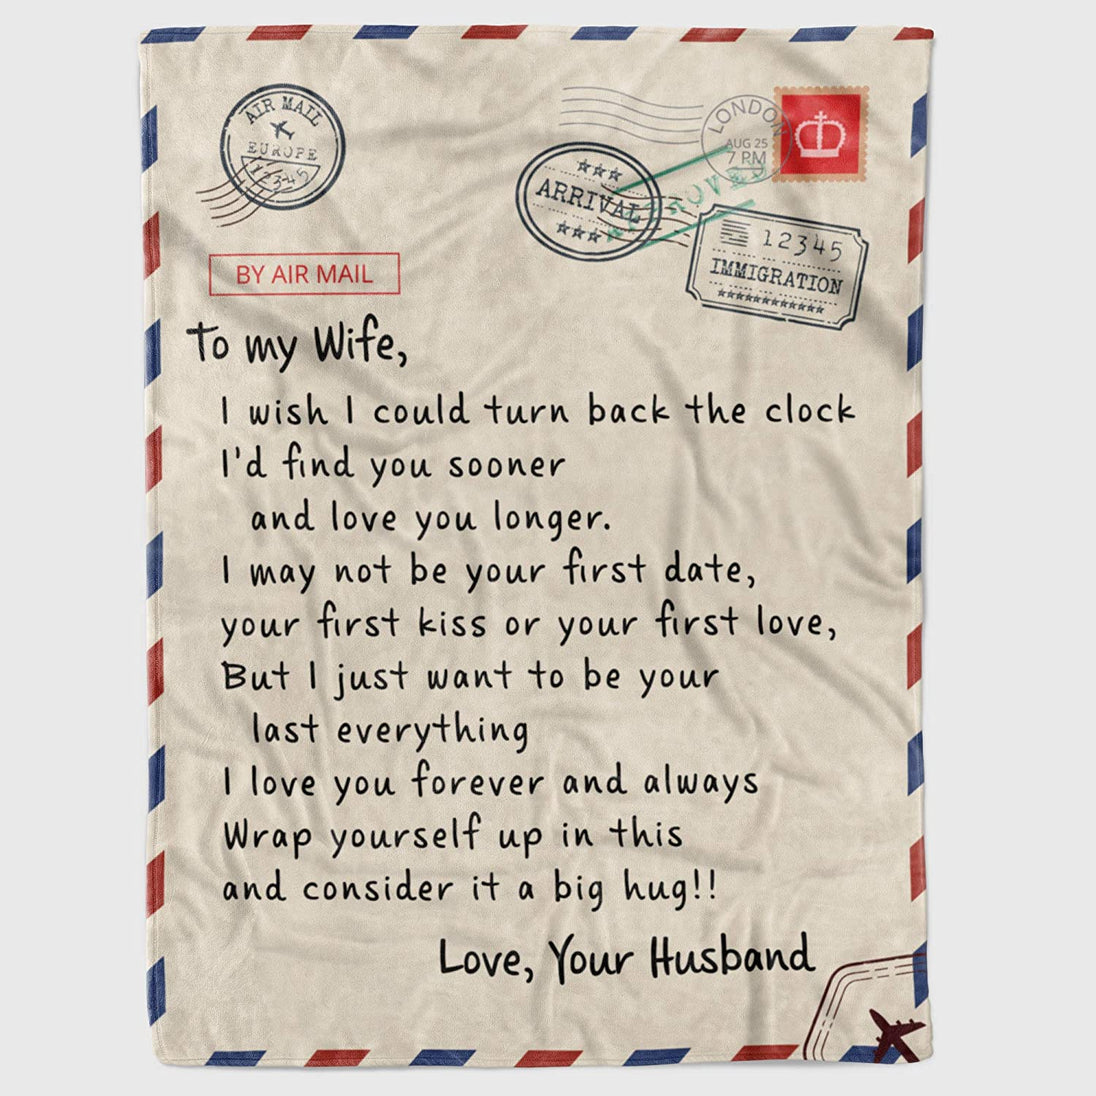 AIR MAIL
EUROPE
12345
LONDON
AUG 25
7 PM
ARRIVAL
APPROVED
12345
IMMIGRATION
BY AIR MAIL
To my Wife,
I wish I could turn back the clock
I'd find you sooner
and love you longer.
I may not be your first date,
your first kiss or your first love,
But I just want to be your
last everything
I love you forever and always
Wrap yourself up in this
and consider it a big hug!!
Love, Your Husband